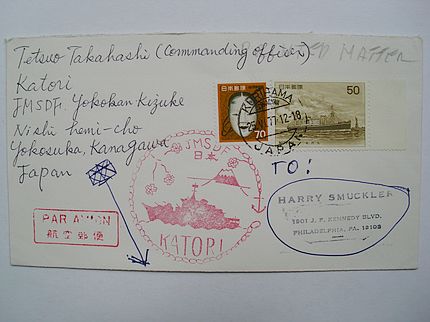 Tetsuo Takahashi (Commanding officer)
PRINTED MATTER
Katori
JMSDF. Yokokan Kizuke
Nishi hemi-cho
Yokosuka, Kanagawa
Japan
日本郵便
70
日本郵便 50
YOKOHAMA
77.12-18
JAPAN
JMSDF
日本
KATORI
PAR AVION
航空郵便
TO:
HARRY SMUCKLER
1901 J. F. KENNEDY BLVD.
PHILADELPHIA, PA. 19103